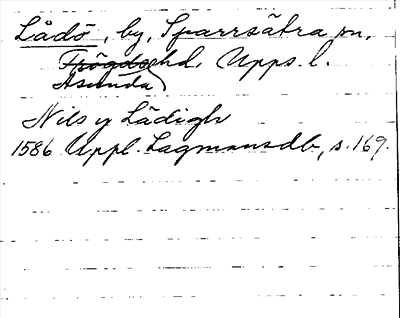 Lådö, by, Sparrsätra sn,
Frögdshd. Upps. l.
Asunda
Nils y Lådigh
1586 Uppl. Lagmansdb, s. 169.